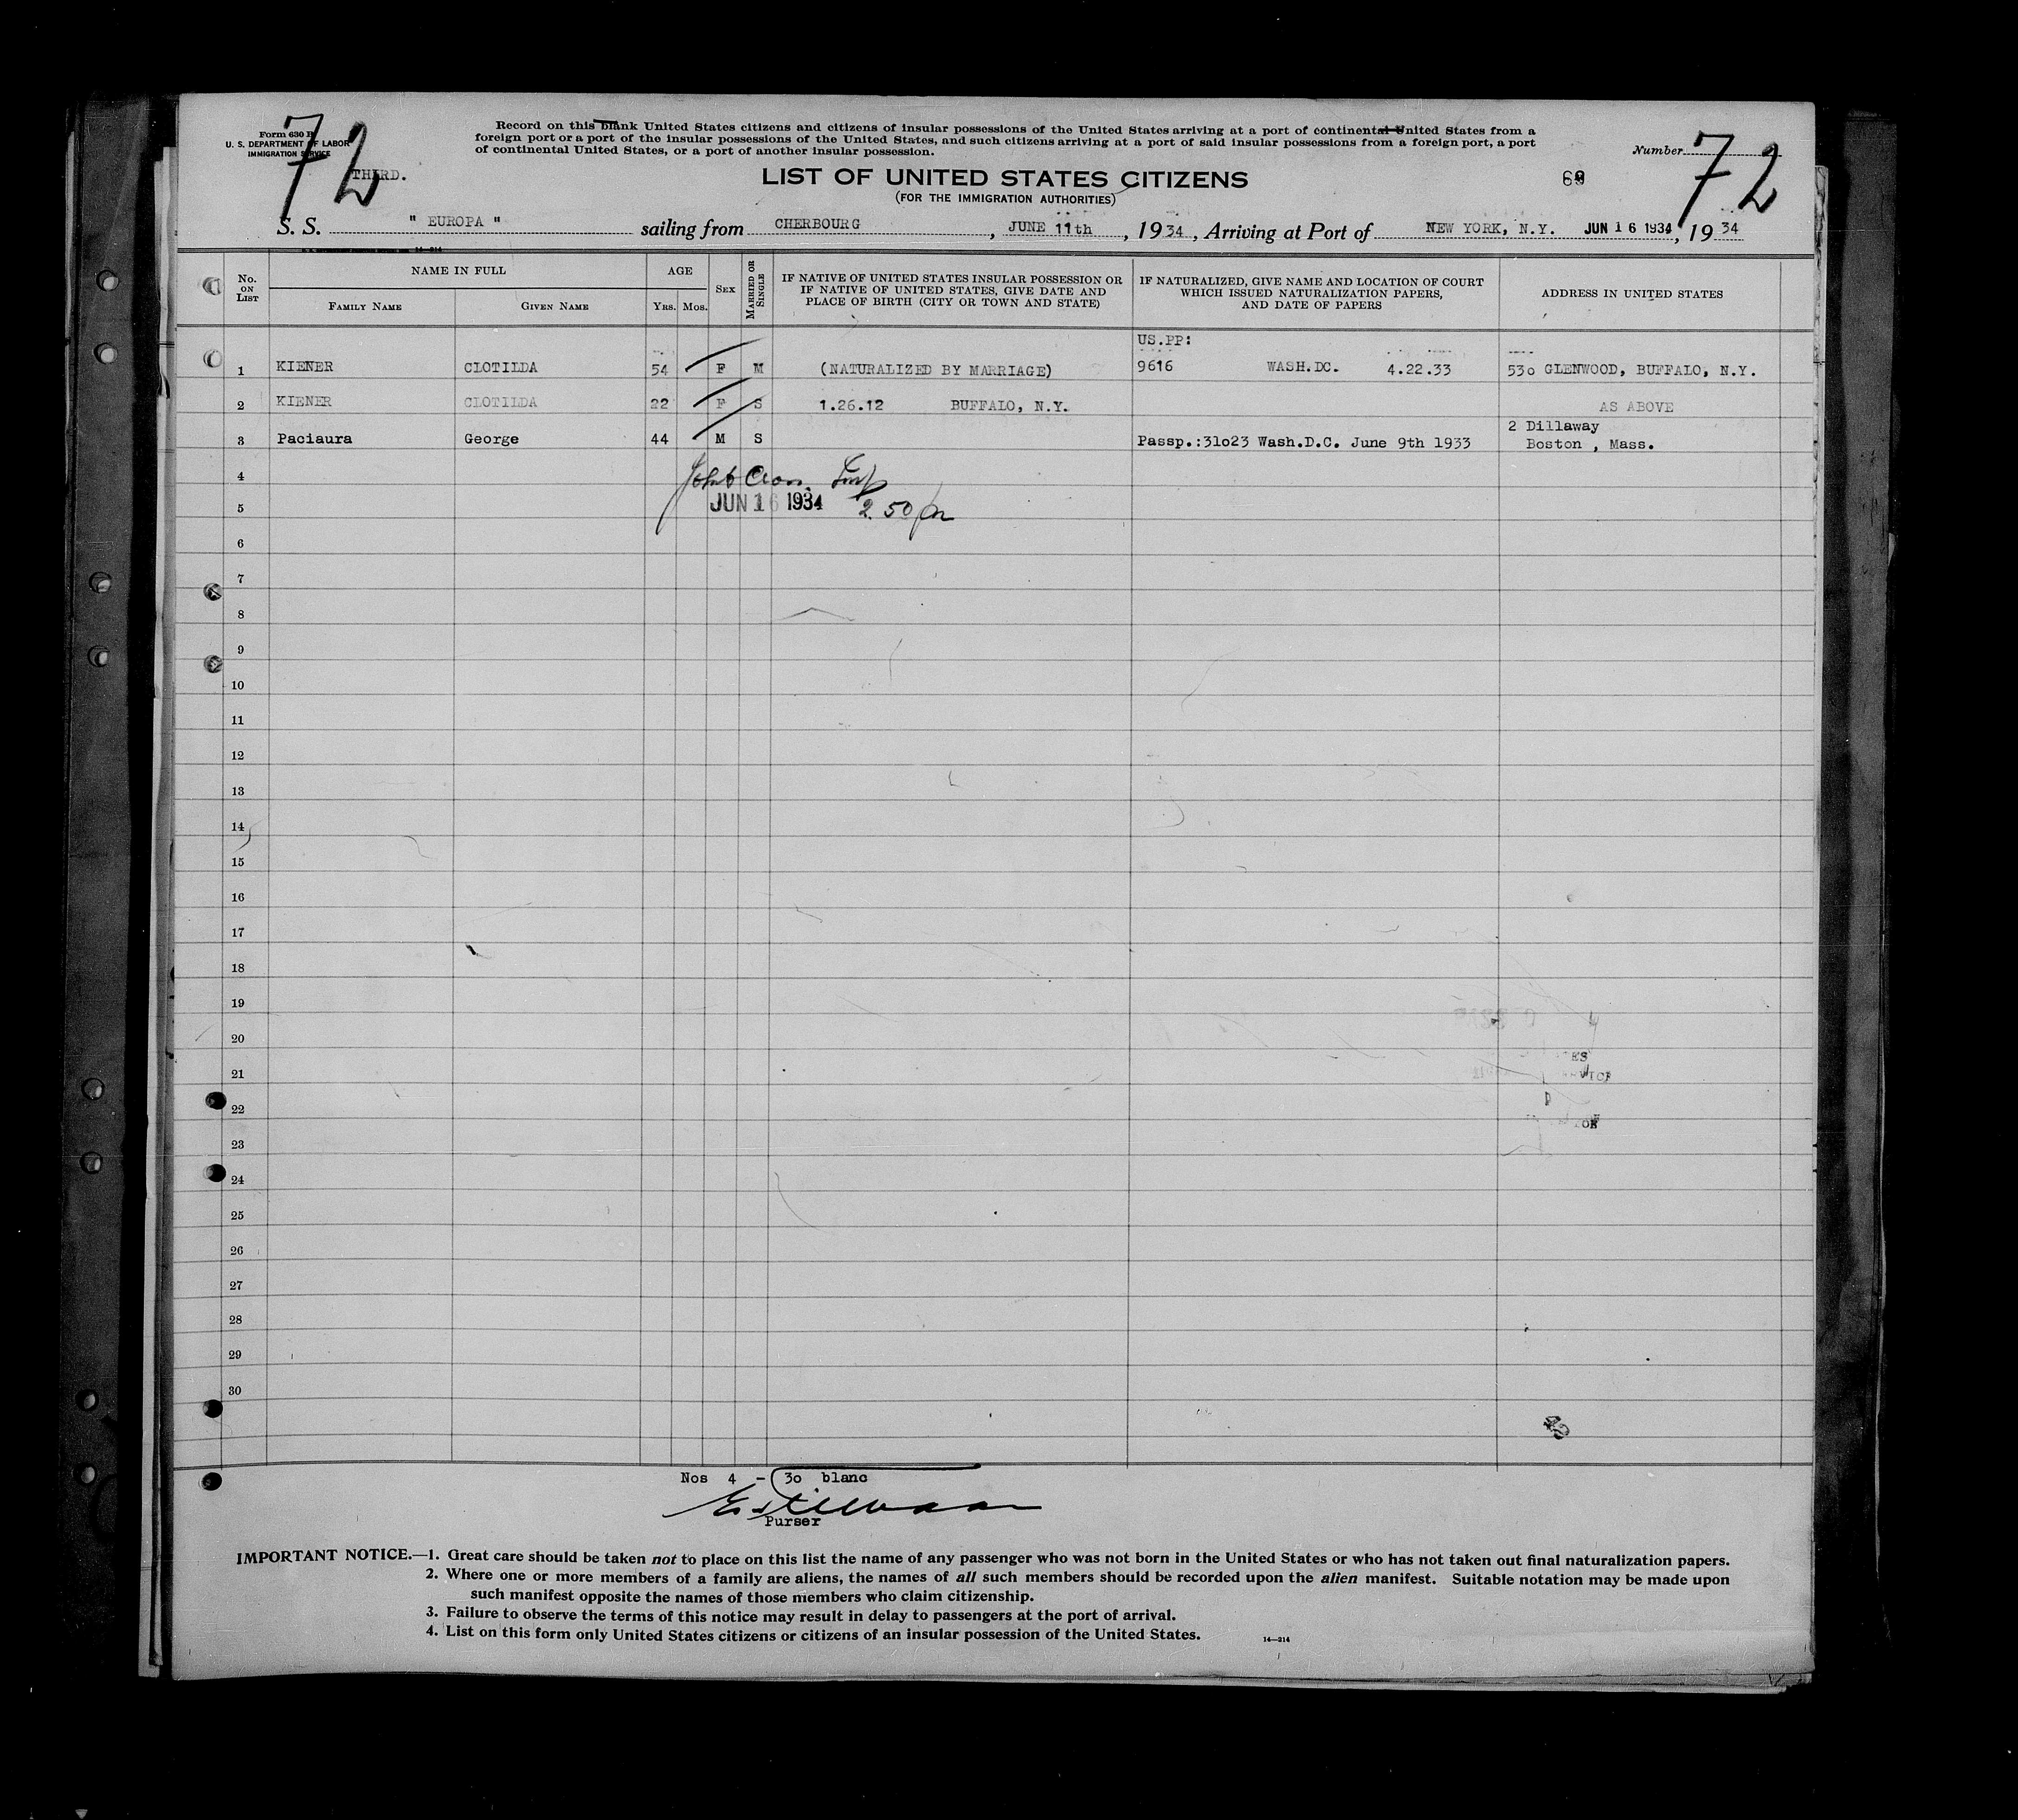 72
72
Form 630 B
U. S. DEPARTMENT OF LABOR
IMMIGRATION SERVICE
THIRD.
Record on this blank United States citizens and citizens of insular possessions of the United States arriving at a port of continental United States from a
foreign port or a port of the insular possessions of the United States, and such citizens arriving at a port of said insular possessions from a foreign port, a port
of continental United States, or a port of another insular possession.
Number
LIST OF UNITED STATES CITIZENS
(FOR THE IMMIGRATION AUTHORITIES)
S. S. " EUROPA " sailing from CHERBOURG, JUNE 11th, 1934, Arriving at Port of NEW YORK, N.Y. JUN 16 1934, 1934
14-214
No. ON LIST
NAME IN FULL
FAMILY NAME
GIVEN NAME
AGE
YRS. MOS.
SEX
MARRIED OR SINGLE
IF NATIVE OF UNITED STATES INSULAR POSSESSION OR
IF NATIVE OF UNITED STATES, GIVE DATE AND
PLACE OF BIRTH (CITY OR TOWN AND STATE)
IF NATURALIZED, GIVE NAME AND LOCATION OF COURT
WHICH ISSUED NATURALIZATION PAPERS,
AND DATE OF PAPERS
ADDRESS IN UNITED STATES
US.PP:
1 KIENER CLOTILDA 54 F M (NATURALIZED BY MARRIAGE) 9616 WASH.DC. 4.22.33 53o GLENWOOD, BUFFALO, N.Y.
2 KIENER CLOTILDA 22 F S 1.26.12 BUFFALO, N.Y. AS ABOVE
3 Paciaura George 44 M S Passp.:31o23 Wash.D.C. June 9th 1933 2 Dillaway
Boston , Mass.
4
JUN 16 1934 2.50 pm
5
6
7
8
9
10
11
12
13
14
15
16
17
18
19
20
21
22
23
24
25
26
27
28
29
30
Nos 4 - 3o blanc
Purser
IMPORTANT NOTICE.—1. Great care should be taken not to place on this list the name of any passenger who was not born in the United States or who has not taken out final naturalization papers.
2. Where one or more members of a family are aliens, the names of all such members should be recorded upon the alien manifest. Suitable notation may be made upon
such manifest opposite the names of those members who claim citizenship.
3. Failure to observe the terms of this notice may result in delay to passengers at the port of arrival.
4. List on this form only United States citizens or citizens of an insular possession of the United States.
14—214